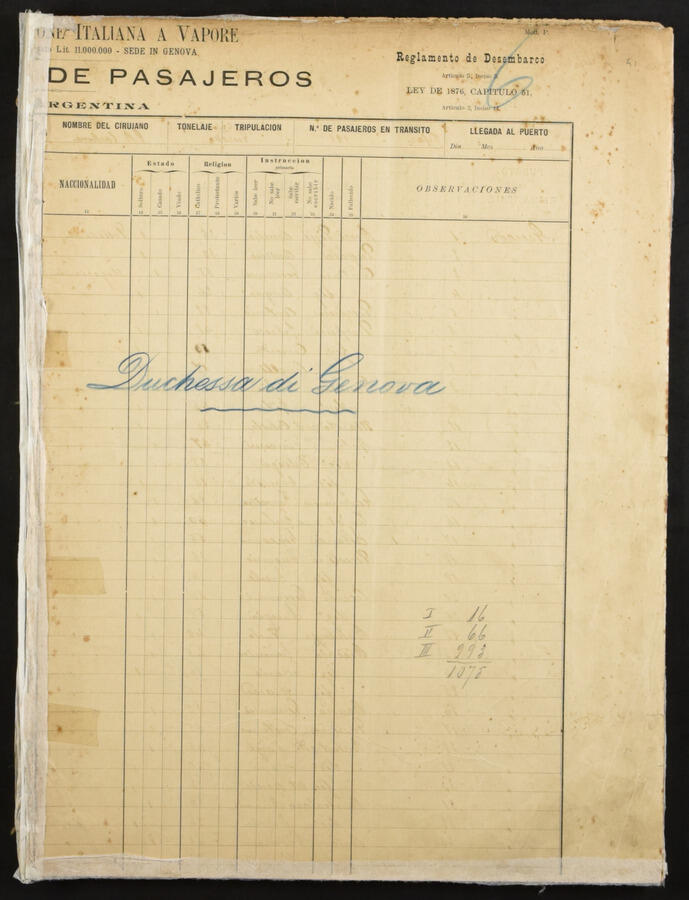 ONE ITALIANA A VAPORE
Lit. 11.000.000 - SEDE IN GENOVA.
DE PASAJEROS
RGENTINA
Mod. 1º
Reglamento de Desembarco
Artículo 9, Inciso 3.
LEY DE 1876, CAPITULO 51.
Artículo 2, Inciso 14.
6
51
NOMBRE DEL CIRUJANO TONELAJE TRIPULACION N.º DE PASAJEROS EN TRANSITO LLEGADA AL PUERTO
Dia Mes Año
NACCIONALIDAD
Estado Religion Instruccion primaria
Soltero Casado Viudo Catolico Protestante Varios Sabe leer No sabe leer Sabe escribir No sabe escribir Nacido Fallecido
OBSERVACIONES
Duchessa di Genova
I 16
II 66
III 993
1075